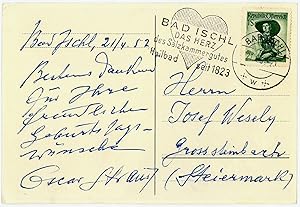 Bad Ischl, 21/4. 52
BAD ISCHL
DAS HERZ
des Salzkammergutes
Heilbad seit 1823
Besten Dank
für Ihre
freundlichen
Geburtstags-
wünsche
Oscar Straus
Herrn
Josef Wesely
Grosssteinbach
(Steiermark)